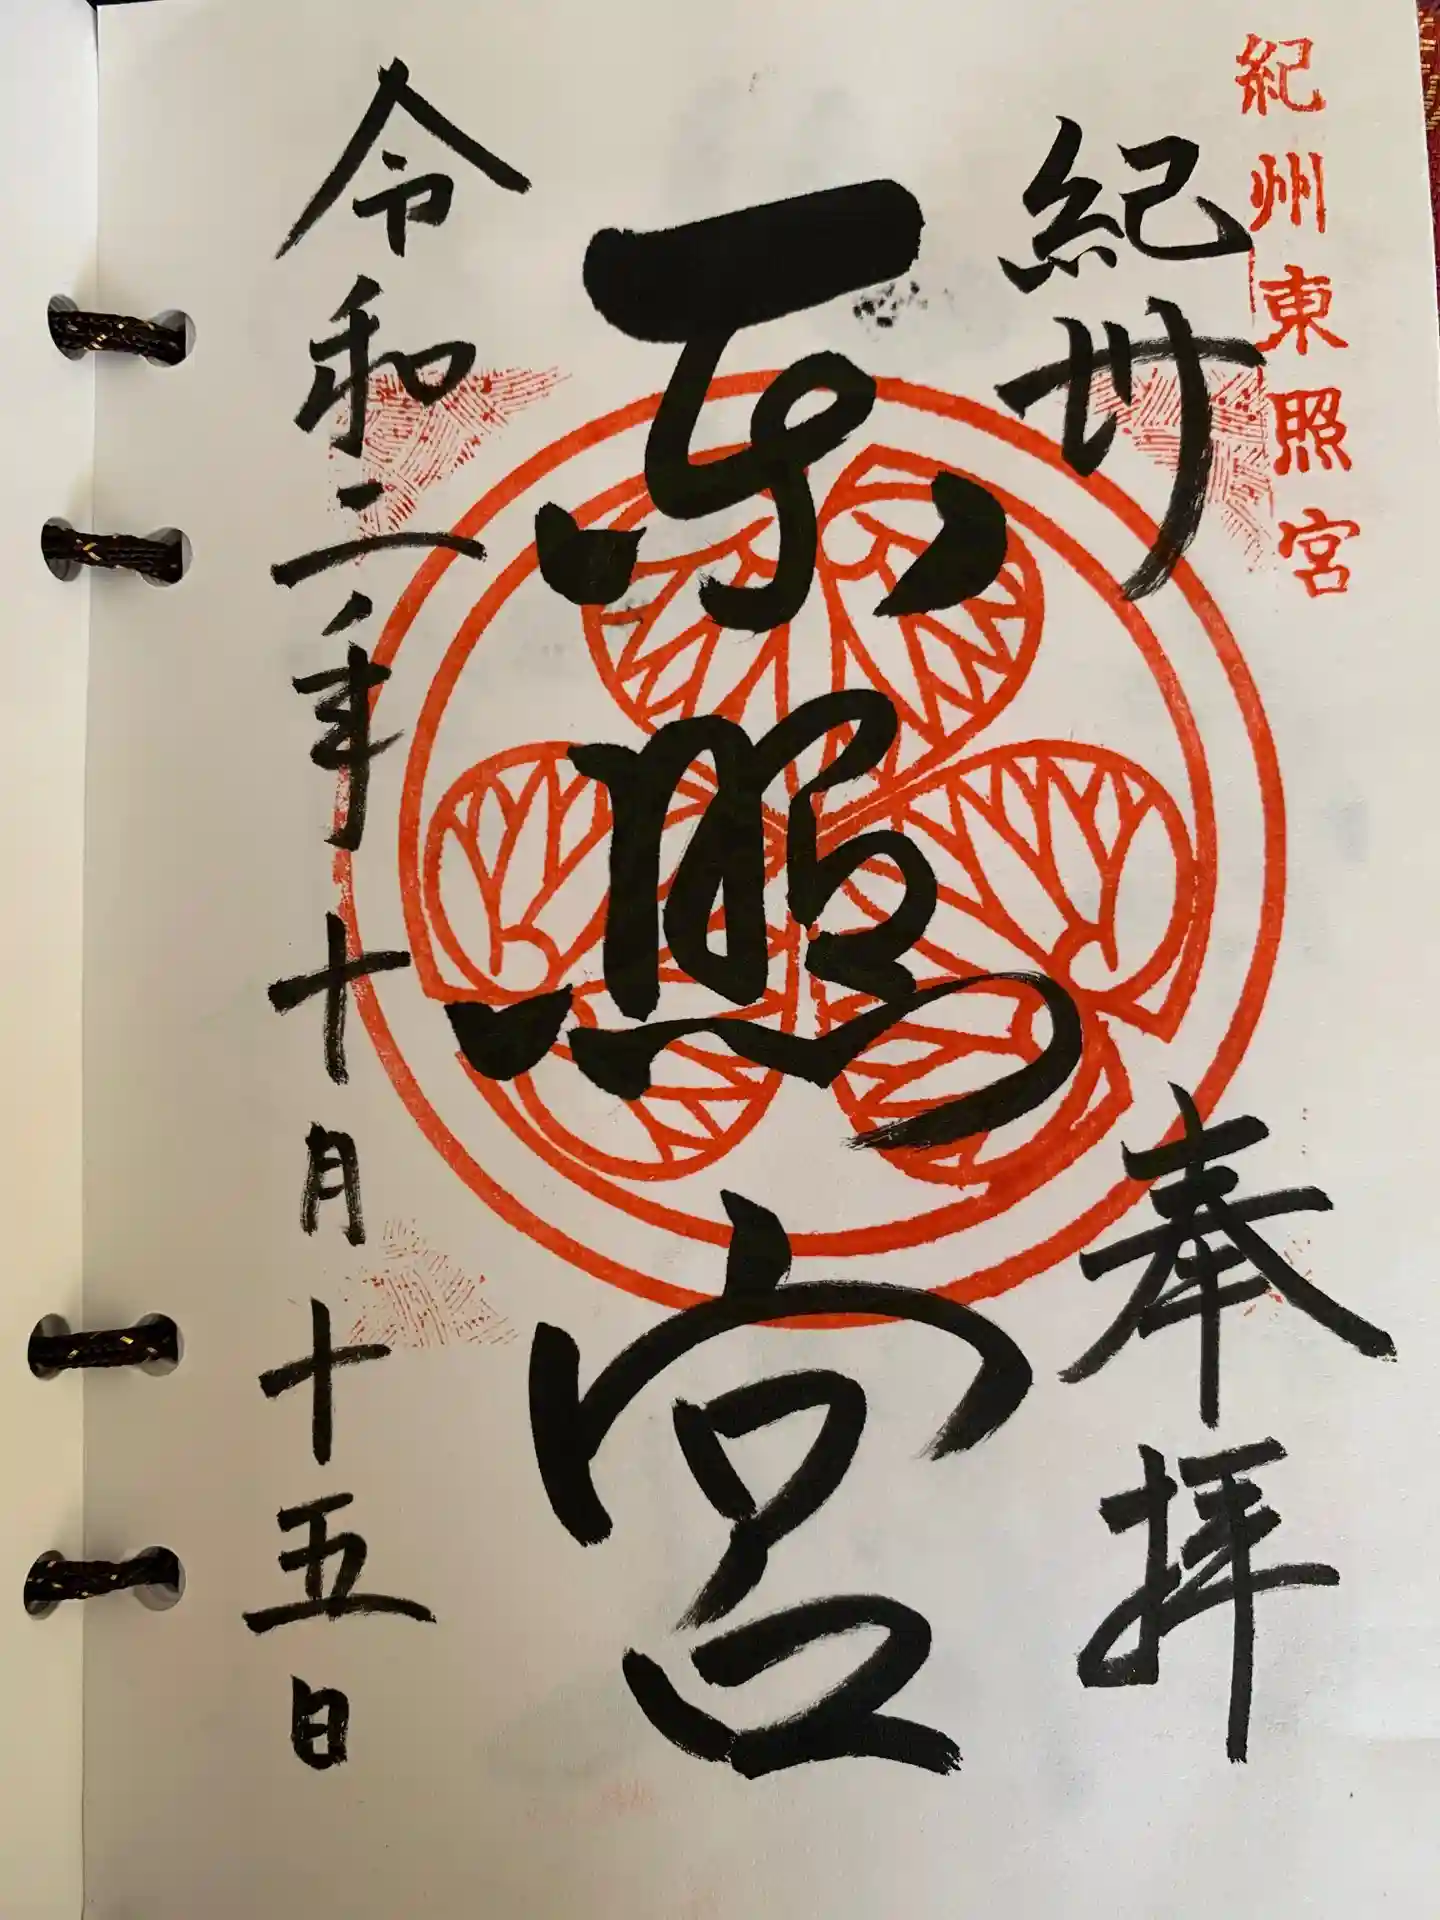 紀州東照宮
紀州 奉拝
東照宮
令和二年十月十五日